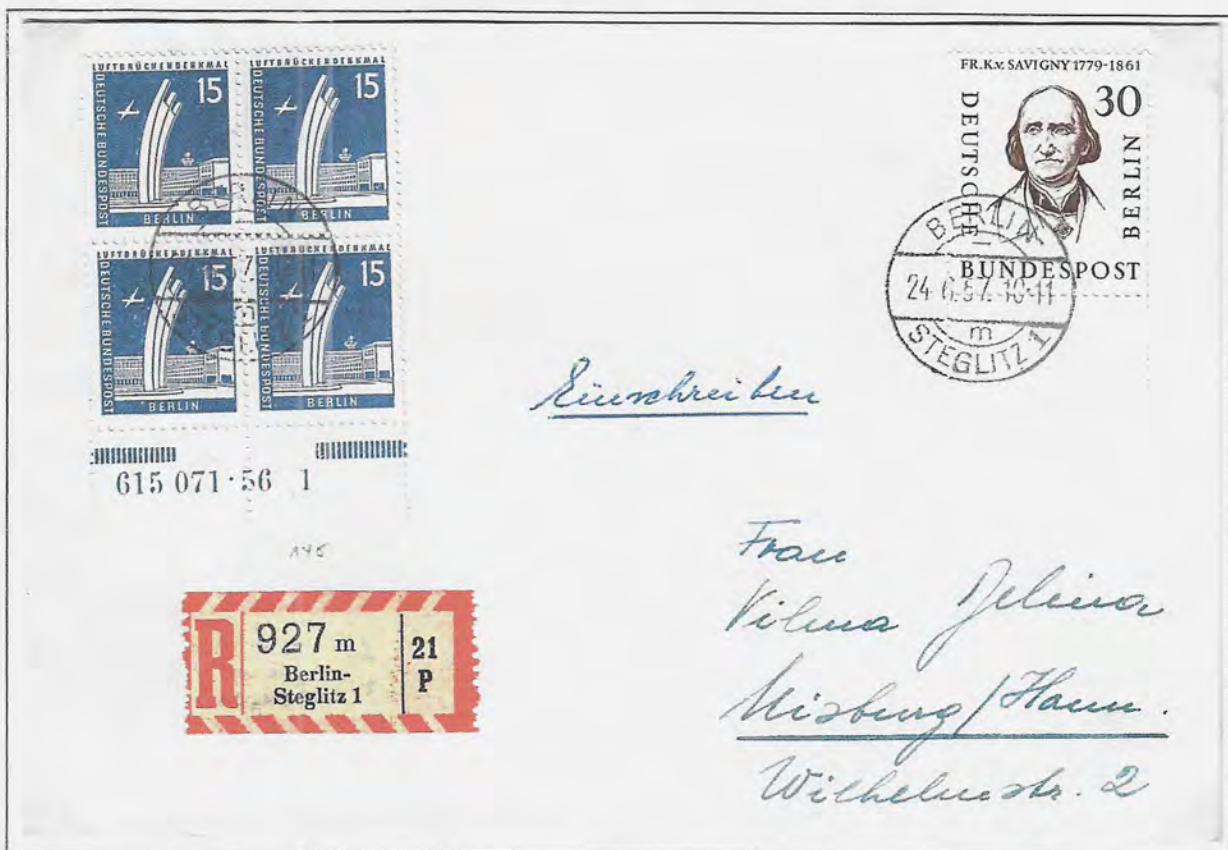 LUFTBRÜCKENDENKMAL
15
DEUTSCHE BUNDESPOST
BERLIN
LUFTBRÜCKENDENKMAL
15
DEUTSCHE BUNDESPOST
BERLIN
LUFTBRÜCKENDENKMAL
15
DEUTSCHE BUNDESPOST
BERLIN
LUFTBRÜCKENDENKMAL
15
DEUTSCHE BUNDESPOST
BERLIN
BERLIN
615 071·56 1
FR.K.v. SAVIGNY 1779-1861
30
DEUTSCHE
BERLIN
BUNDESPOST
BERLIN
24.6.57.10-11
m
STEGLITZ 1
Einschreiben
R
927 m
Berlin-
Steglitz 1
21
P
Frau
Vilma Delina
Misburg/Hann.
Wilhelmstr. 2